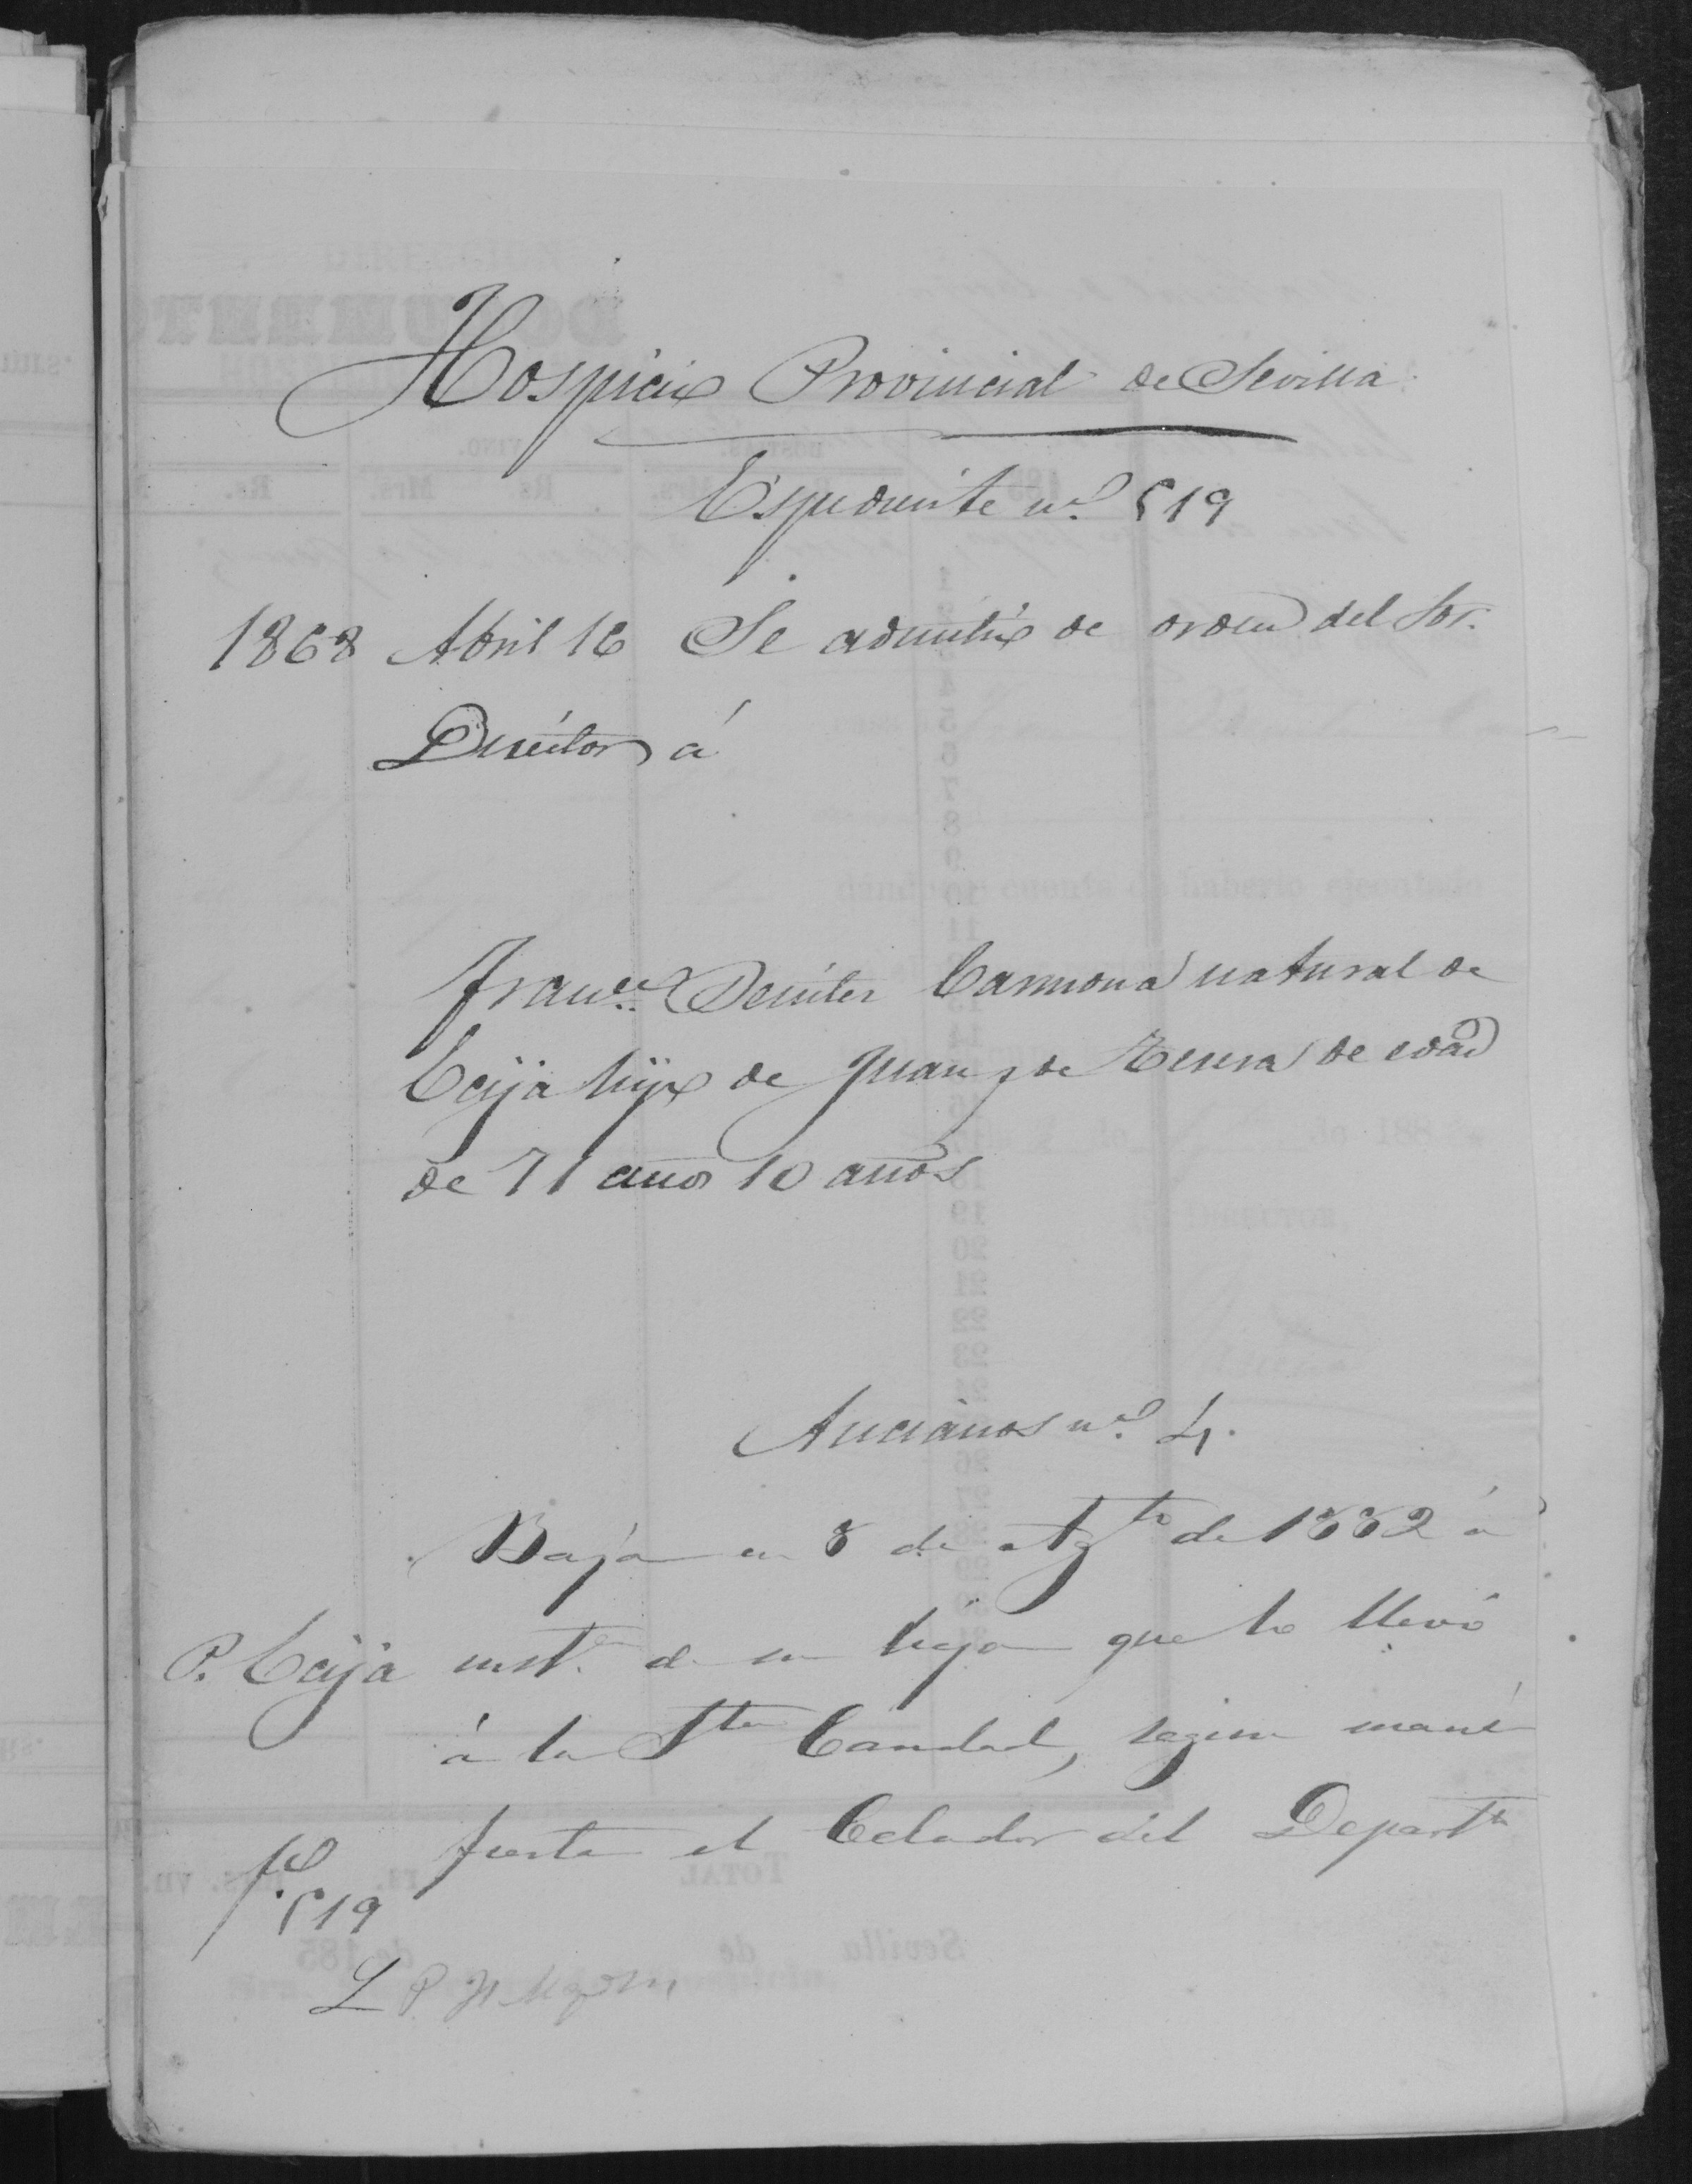 Hospicio Provincial de Sevilla
Espediente nº 519
1868 Abril 16 Se admitió de orden del Sor.
Director á
Franco Benitez Carmona natural de
Ecija hijo de Juan y de Teresa de edad
de 71 años 10 años
Ancianos nº 4.
Baja en 8 de Agto de 1882 á
P. Ecija inst.a de su hija que lo llevó
á la Sta Caridad, segun mani
fiesta el Celador del Departto
fº 519
L P H